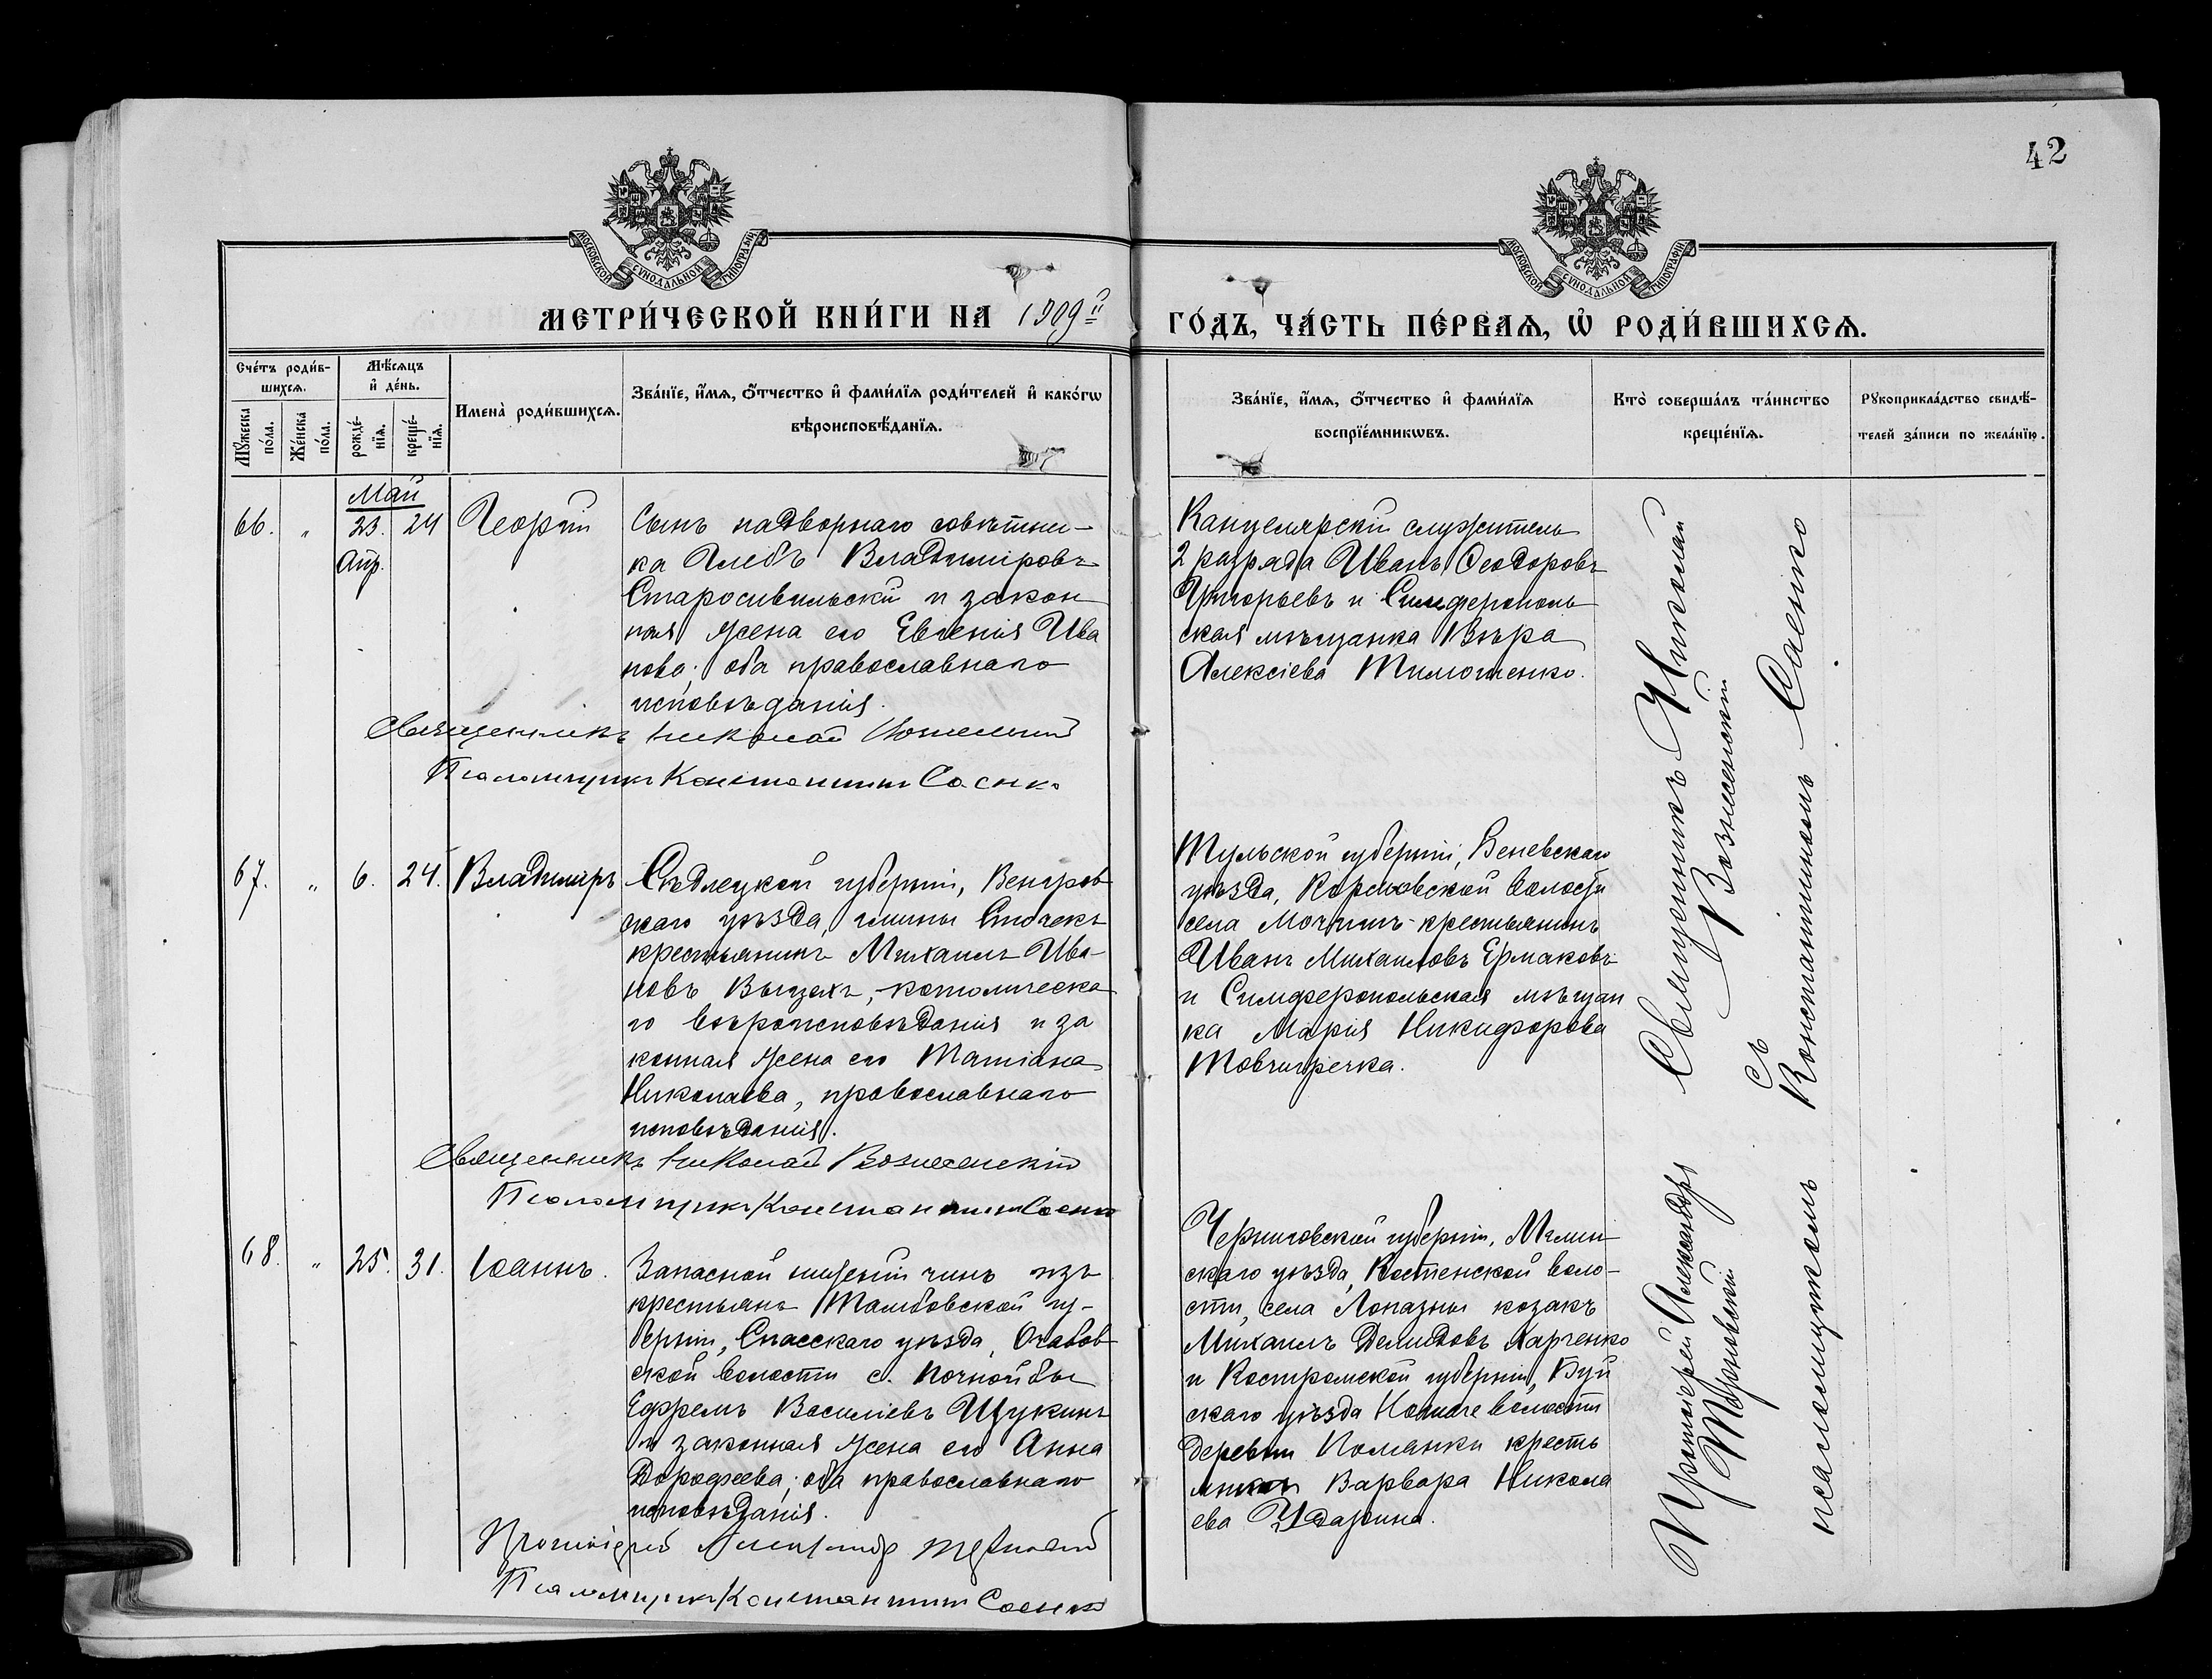 42
МОСКОВСКОЙ СѴНОДАЛЬНОЙ ТИПОГРАФІИ
МОСКОВСКОЙ СѴНОДАЛЬНОЙ ТИПОГРАФІИ
МЕТРИ́ЧЕСКОЙ КНИ́ГИ НА 1909й
ГО́ДЪ, ЧА́СТЬ ПЕ́РВАѦ, Ѡ҆ РОДИ́ВШИХСѦ.
Сче́тъ роди́в-
шихсѧ.
Мꙋжеска
по́ла.
Же́нска
по́ла.
Мѣ́сѧцъ
и҆ де́нь.
рожде́-
нїѧ.
креще́-
нїѧ.
Имена̀ роди́вшихсѧ.
Зва́нїе, и҆́мѧ, ѻ҆́тчество и҆ фами́лїѧ роди́телей и҆ како́гѡ
вѣроисповѣ́данїѧ.
Зва́нїе, и҆́мѧ, ѻ҆́тчество и҆ фами́лїѧ
воспрїе́мникѡвъ.
Кто̀ соверша́лъ та́инство
креще́нїѧ.
Рꙋкоприкла́дство свидѣ́-
телей за́писи по жела́нїю.
Май
66. " 23. 24 Георгій
Апр.
Сынъ надворнаго совѣтни-
ка Глебъ Владиміровъ
Старосивильскій и закон
ная жена его Евгенія Ива
нова; оба православнаго
исповѣданія.
Священникъ Николай Вознесенскій
Псаломщикъ Константинъ Саенко
Канцелярскій служитель
2 разряда Иванъ Ѳеодоровъ
Григорьевъ и Симферополь
ская мѣщанка Вѣра
Алексіева Тимошенко.
67. " 6. 24. Владиміръ
Сѣдлецкой губерніи, Венгров
скаго уѣзда, гмины Сточекъ
крестьянинъ Михаилъ Ива-
новъ католическа
го вѣроисповѣданія и за
конная жена его Татіана
Николаева, православнаго
исповѣданія.
Священникъ Николай Вознесенскій
Псаломщикъ Константинъ Саенко
Тульской губерніи, Веневскаго
уѣзда, волости
села крестьянинъ
Иванъ Михаиловъ Ермаковъ
и Симферопольская мѣщан
ка Марія Никифорова
Товчигречка.
Священникъ Николай
Вознесенскій
съ
Константиномъ Саенко
68. " 25. 31. Іоаннъ.
Запасной нижній чинъ изъ
крестьянъ Тамбовской гу-
берніи, Спасскаго уѣзда,
ской волости с.
Ефремъ Василіевъ Щукинъ
и законная жена его Анна
Дорофеева; оба православнаго
исповѣданія.
Протоіерей Александръ Терновскій
Псаломщикъ Константинъ Саенко
Черниговской губерніи, Мглин-
скаго уѣзда, Костенской воло-
сти, села Лопазны козакъ
Михаилъ Демидовъ Харченко
и Костромской губерніи, Буй
скаго уѣзда волости
деревни кресть
янка Варвара Никола
ева Ударина.
Протоіерей Александръ
Терновскій
псаломщикомъ